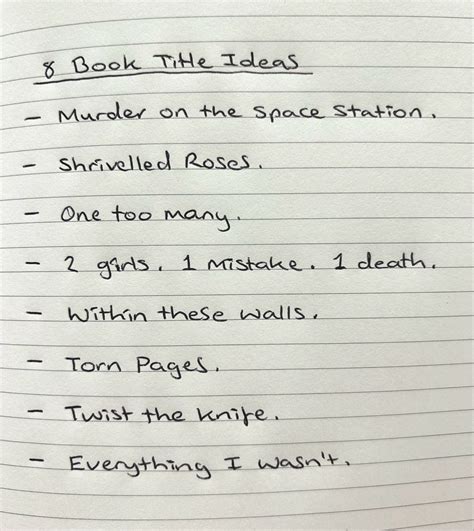 8 Book Title Ideas
- Murder on the space station.
- Shrivelled Roses.
- One too many.
- 2 girls. 1 mistake. 1 death.
- Within these walls.
- Torn Pages.
- Twist the knife.
- Everything I wasn't.